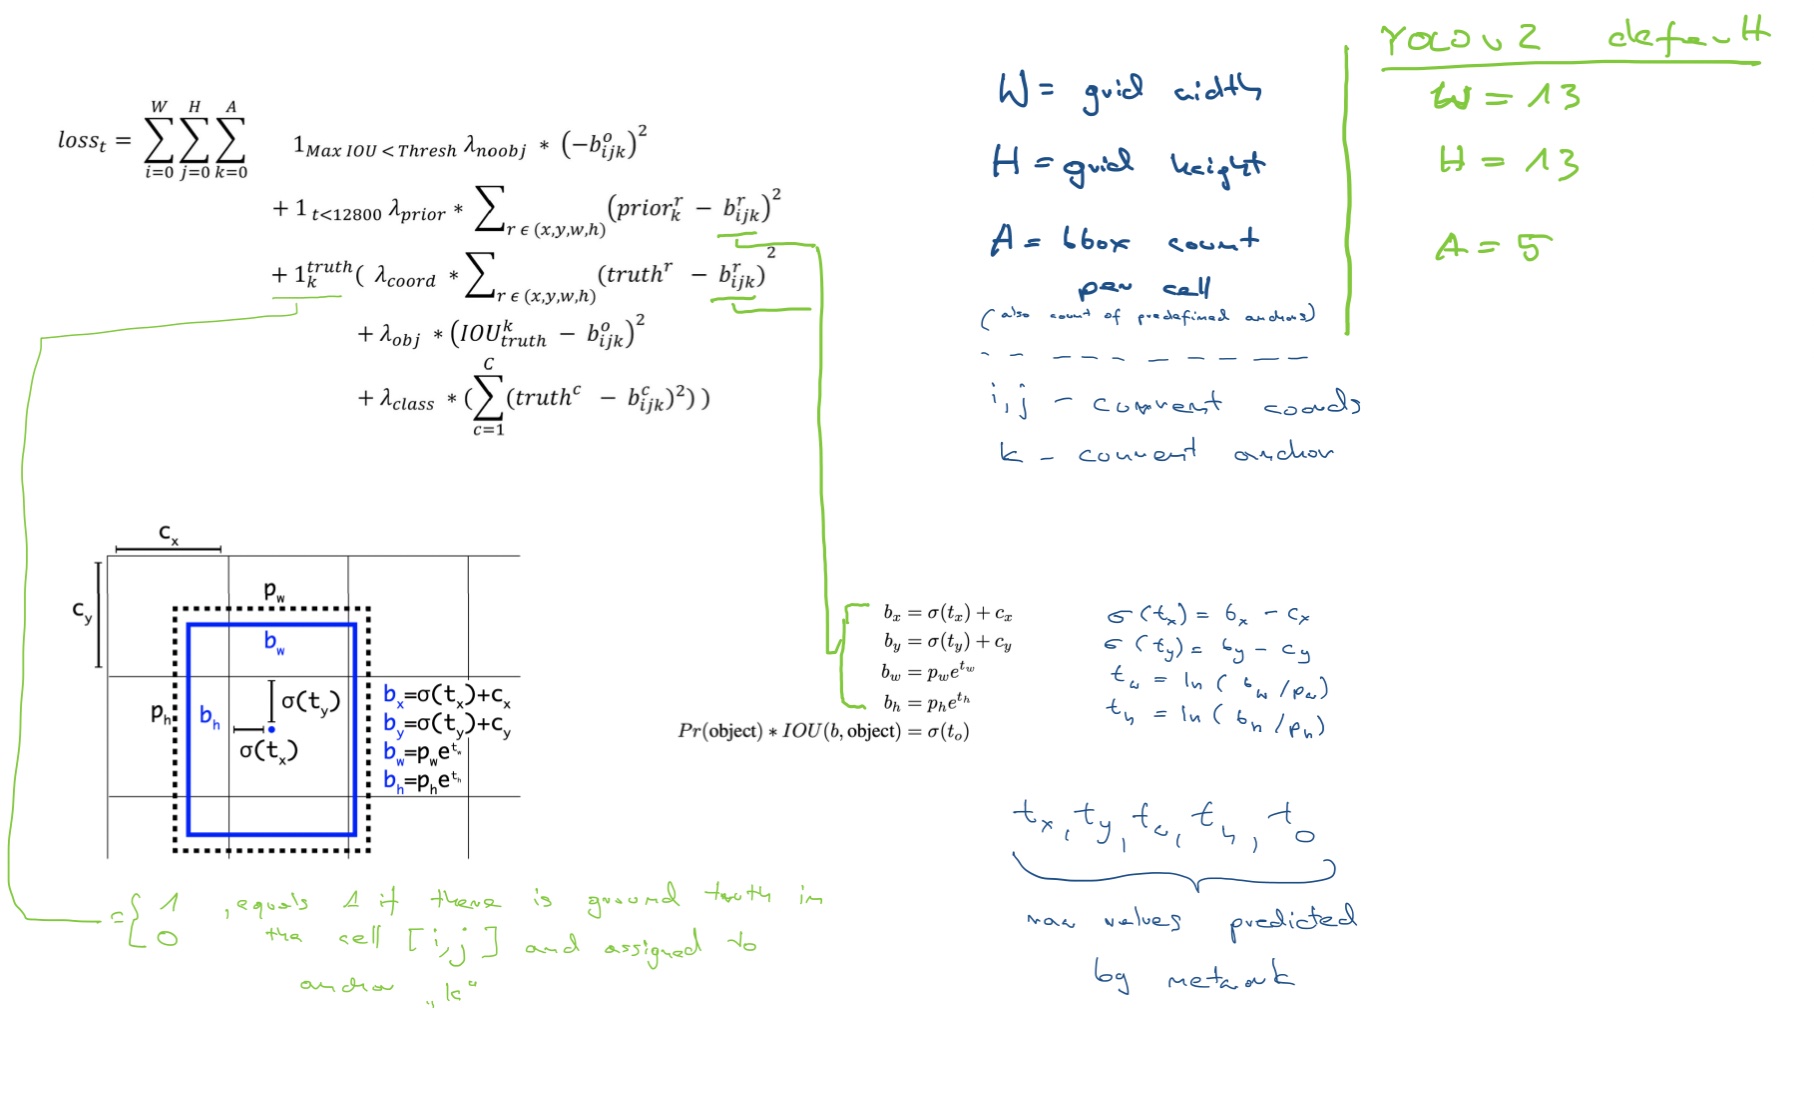 loss_t = \sum_{i=0}^{W} \sum_{j=0}^{H} \sum_{k=0}^{A} 1_{Max IOU < Thresh} λ_{noobj} * (-b_{ijk}^{o})^2
+ 1_{t<12800} λ_{prior} * \sum_{r ϵ (x,y,w,h)} (prior_k^r - b_{ijk}^r)^2
+ 1_k^{truth} ( λ_{coord} * \sum_{r ϵ (x,y,w,h)} (truth^r - b_{ijk}^r)^2
+ λ_{obj} * (IOU_{truth}^k - b_{ijk}^o)^2
+ λ_{class} * (\sum_{c=1}^{C} (truth^c - b_{ijk}^c)^2) )
W = grid width
H = grid height
A = bbox count
per cell
(also count of predefined anchors)
i,j - current coords
k - current anchor
YOLOv2 default
W = 13
H = 13
A = 5
c_x
c_y
p_w
b_w
p_h
b_h
σ(t_y)
σ(t_x)
b_x=σ(t_x)+c_x
b_y=σ(t_y)+c_y
b_w=p_w e^{t_w}
b_h=p_h e^{t_h}
b_x = σ(t_x) + c_x
b_y = σ(t_y) + c_y
b_w = p_w e^{t_w}
b_h = p_h e^{t_h}
Pr(object) * IOU(b, object) = σ(t_o)
σ(t_x) = b_x - c_x
σ(t_y) = b_y - c_y
t_w = ln(b_w/p_w)
t_h = ln(b_h/p_h)
t_x, t_y, t_w, t_h, t_o
raw values predicted
by network
= { 1 , equals 1 if there is ground truth in
0 the cell [i,j] and assigned to
anchor „k“